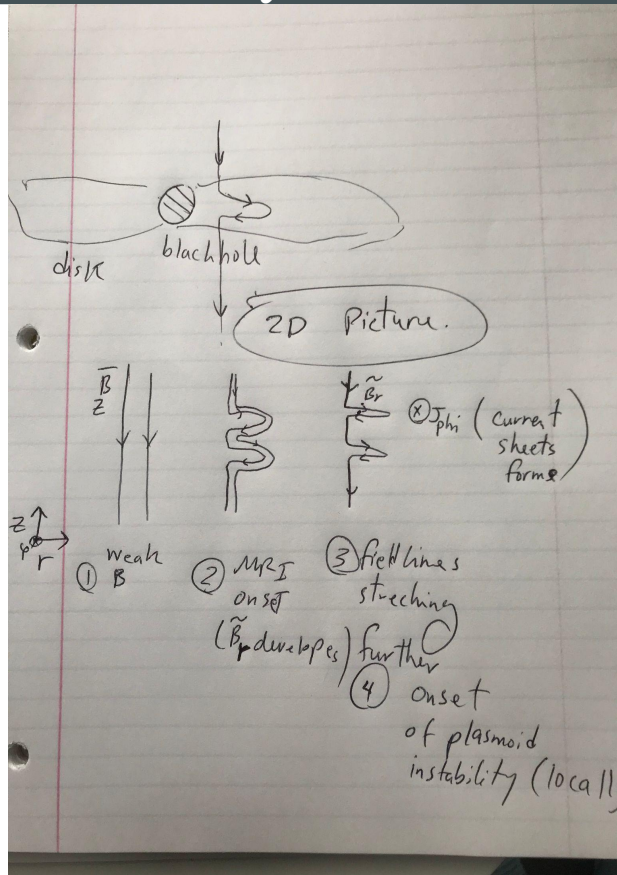 disk
blackhole
2D Picture.
B
Z
B̃r
ⓧ Jphi (current
sheets
forms)
Z
φ
r
① weak
B
② MRI
onset
(B̃r developes)
③ field lines
streching
further
④ onset
of plasmoid
instability (locall